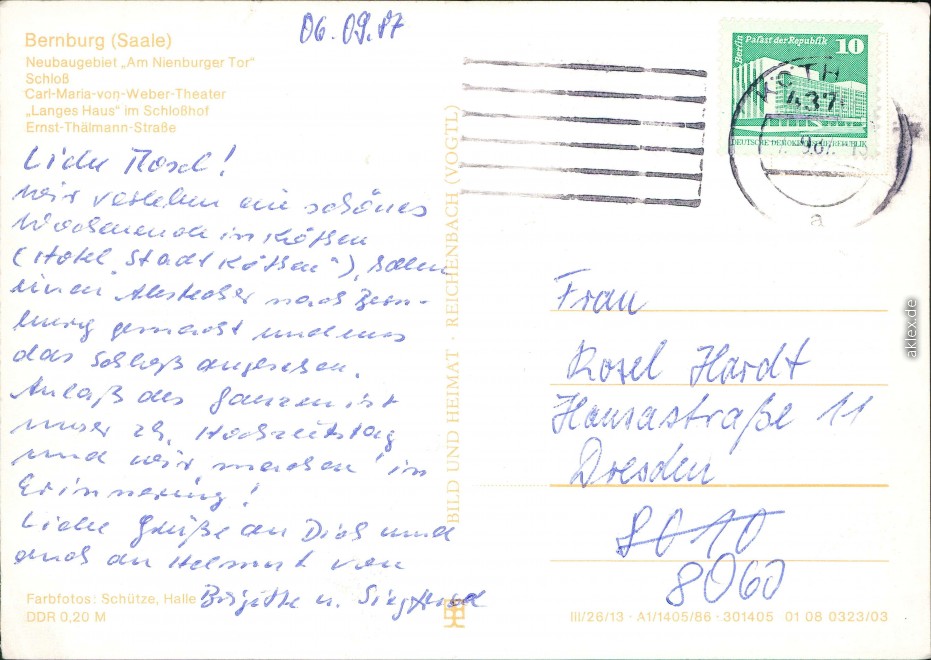 06.09.87
Bernburg (Saale)
Neubaugebiet „Am Nienburger Tor"
Schloß
Carl-Maria-von-Weber-Theater
„Langes Haus" im Schloßhof
Ernst-Thälmann-Straße
Liebe Rosel!
wir verleben ein schönes
Wochenende in Köthen
(Hotel „Stadt Köthen"), haben
einen Abstecher nach Bern-
burg gemacht und uns
das Schloß angesehen.
Anlaß des Ganzen ist
unser 24. Hochzeitstag
und wir machen in
Erinnerung!
Liebe Grüße an Dich und
auch an Helmut von
Brigitte u. Siegfried
Farbfotos: Schütze, Halle
DDR 0,20 M
BILD UND HEIMAT · REICHENBACH (VOGTL)
Berlin Palast der Republik 10
DEUTSCHE DEMOKRATISCHE REPUBLIK
KÖTH
437
a
Frau
Rosel Hardt
Hansastraße 11
Dresden
8010
8060
III/26/13 · A1/1405/86 · 301405 01 08 0323/03
aklex.de